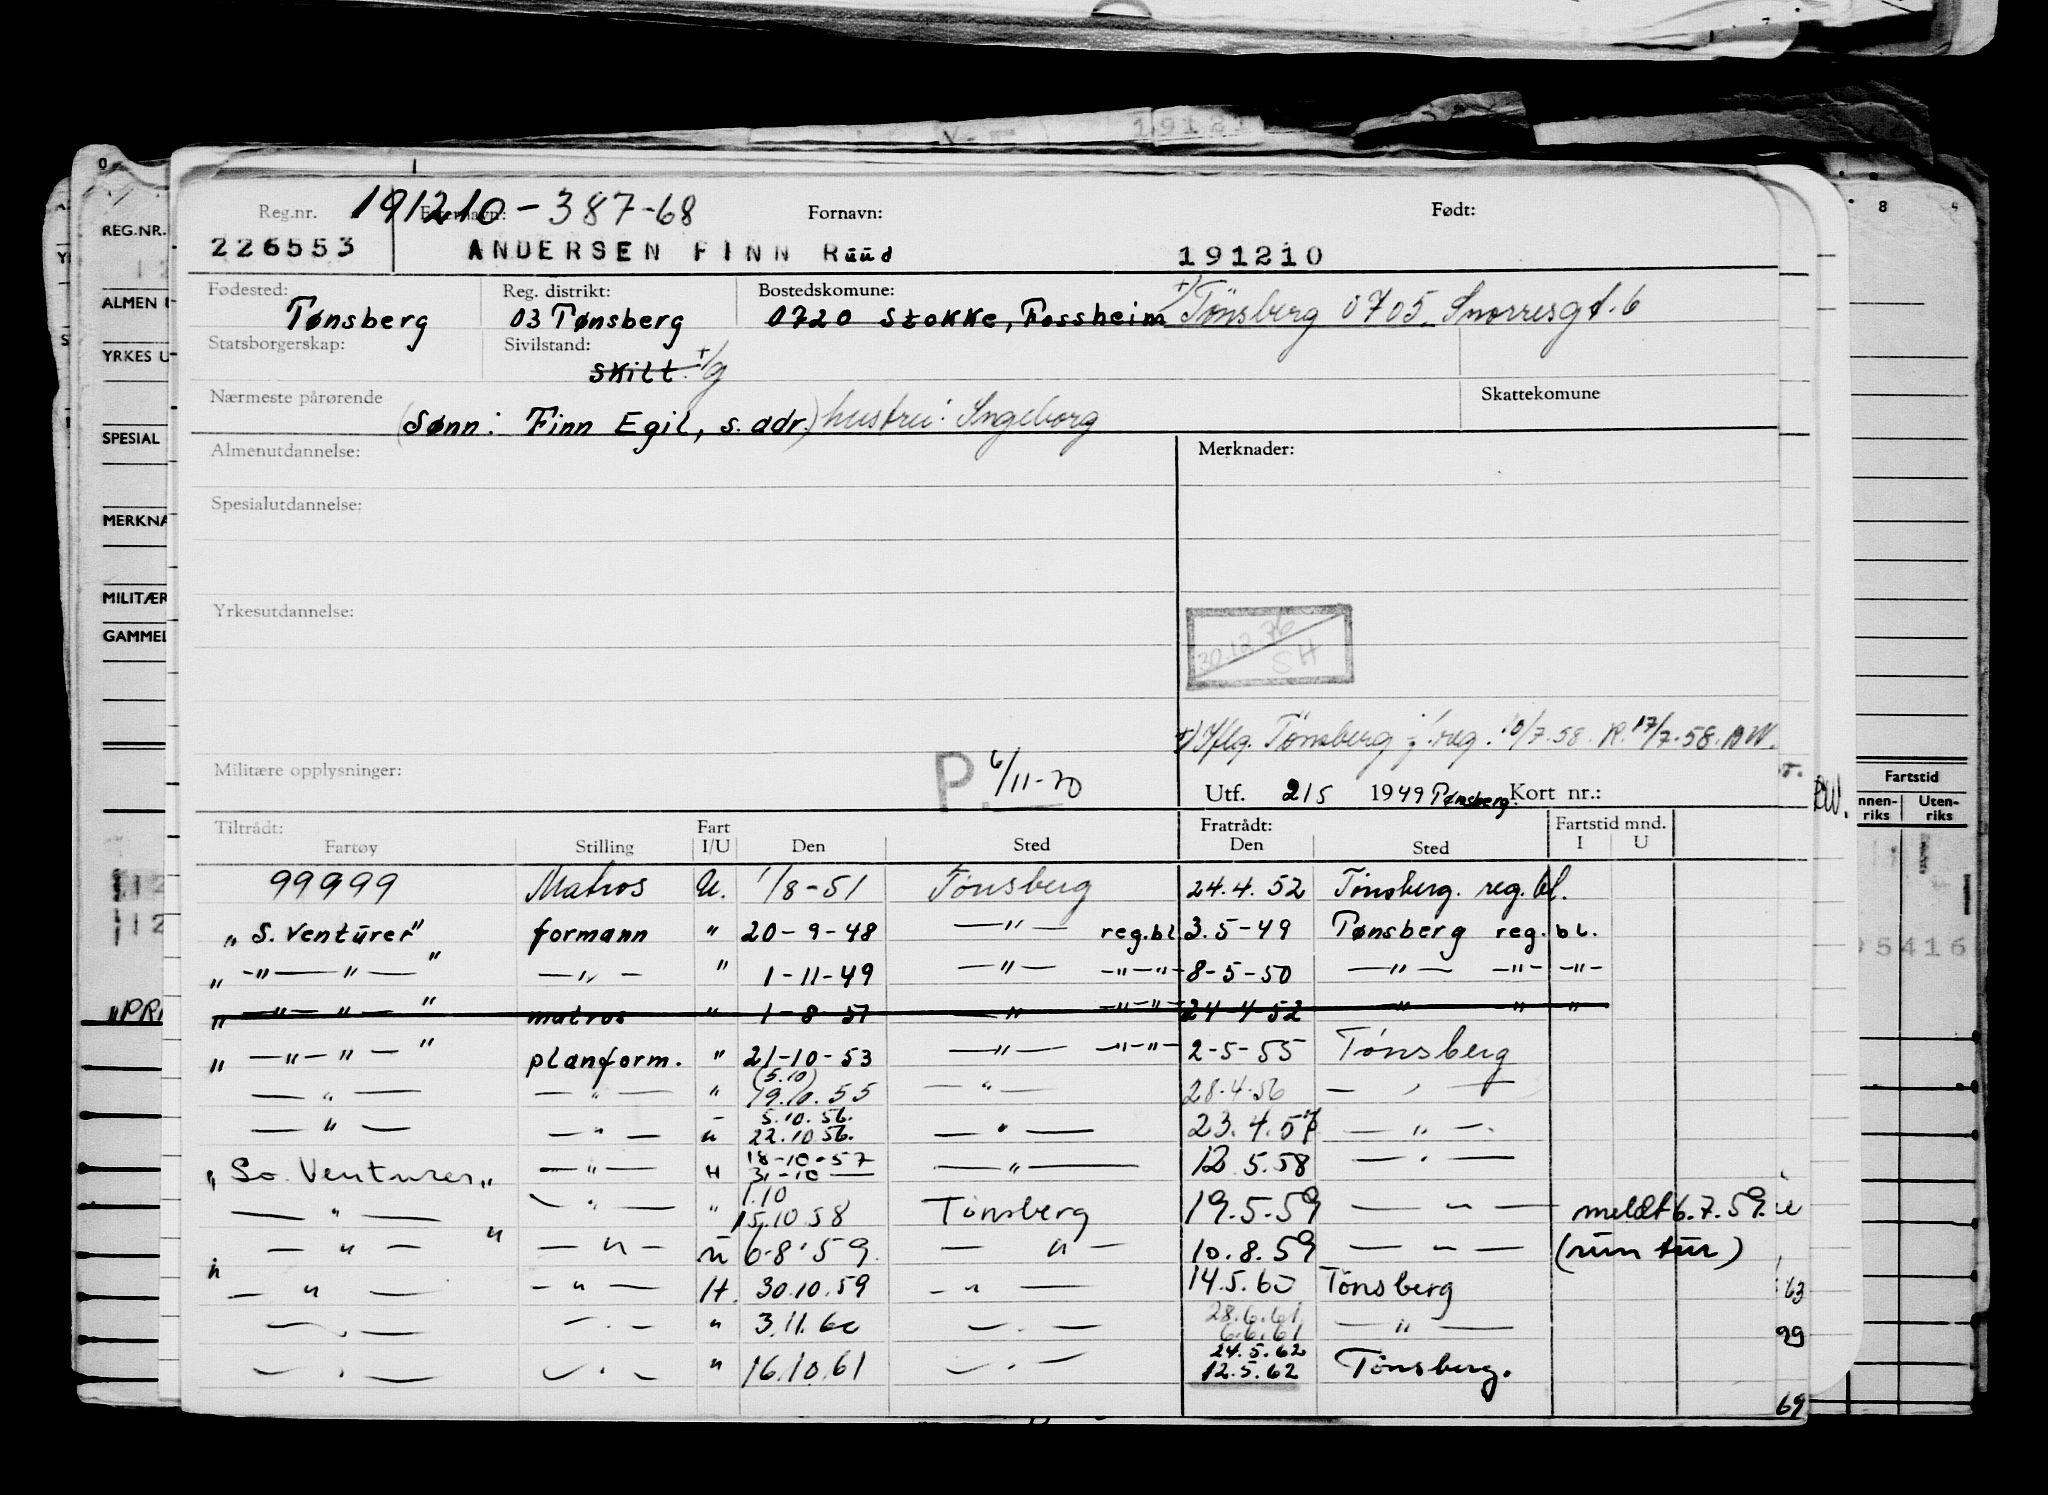 191210-387-68
Reg.nr. Etternavn: Fornavn: Født:
226553 ANDERSEN FINN Rüüd 191210
Fødested: Reg. distrikt: Bostedskomune:
Tønsberg 03 Tønsberg 0720 Stokke, Fossheim +) Tönsberg 0705 Snorresgt. 6
Statsborgerskap: Sivilstand:
skilt. +/g
Nærmeste pårørende Skattekomune
(Sønn: Finn Egil, s. adr.) hustru: Ingeborg
Almenutdannelse: Merknader:
Spesialutdannelse:
Yrkesutdannelse:
30.12.76
SH
+) Iflg. Tönsberg j. reg. 10/7.58. R. 17/7-58. BW.
Militære opplysninger: P. 6/11-70
Utf. 2/5 1949 Tønsberg. Kort nr.:
Tiltrådt: Fart Fratrådt: Fartstid mnd.
Fartøy Stilling I/U Den Sted Den Sted I U
99999 Matros U. 1/8-51 Tönsberg 24.4.52 Tönsberg. reg. bl.
"S. Venturer" formann " 20-9-48 —"— reg.bl. 3.5-49 Tønsberg reg. bl.
" -"— "—" —"— " 1-11-49 —"— -"-"- 8-5-50 —"— -"- -"-
" —"— "—" matros " 1-8-51 —"— -"-"- 24-4-52 " " "
" —"—"—" planform. " 21-10-53 —"— -"-"- 2-5-55 Tönsberg
(5.10)
—"— —"— " 19.10.55 —"— 28.4.56 —"—
5.10.56.
—"— —"— " 22.10.56. —"— 23.4.57 —"—
18-10-57
"So. Venturer" —"— H 31-10— —"— 12.5.58 —"—
1.10
—"— —"— " 15.10.58 Tönsberg 19.5.59 —"— meldt 6.7.59.
—"— " —"— ū 6-8.59. —"— 10.8.59 —"— (en tur)
" —"— —"— H. 30.10.59 —"— 14.5.60 Tönsberg
28.6.61
—"— —"— " 3.11.60 —"— 6.6.61 —"—
24.5.62
—"— —"— " 16.10.61 —"— 12.5.62 Tönsberg.
REG.NR.
ALMEN
YRKES U
SPESIAL
MERKNA
MILITÆR
GAMMEL
"PRI
8
Fartstid
nnen-
riks
Uten-
riks
BW.
5416
63
99
69